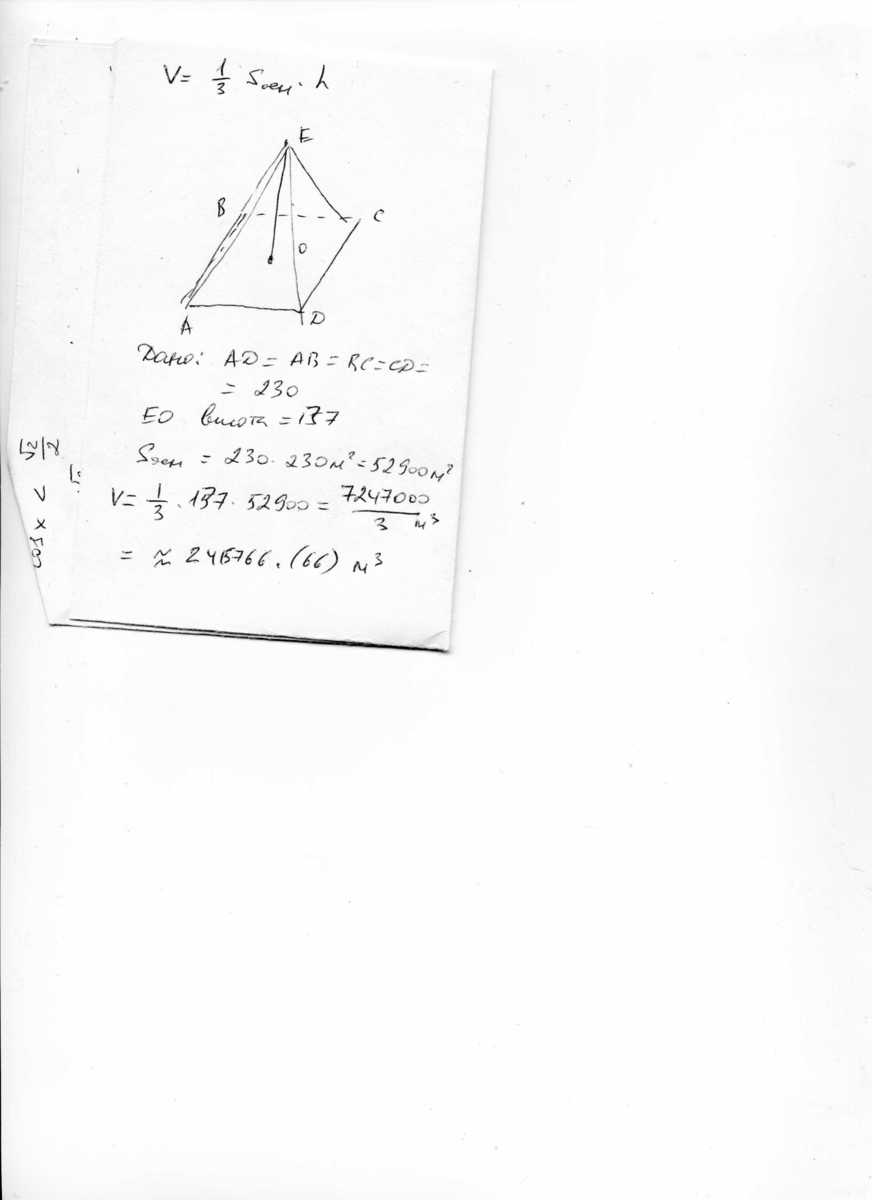 V = 1/3 Sосн · h
E
B
C
O
A
D
Дано: AD = AB = BC = CD =
= 230
EO висота = 137
Sосн = 230 · 230 м² = 52900 м²
V = 1/3 · 137 · 52900 = 7247000/3 м³
= ≈ 2415766.(66) м³
cos x < √2/2